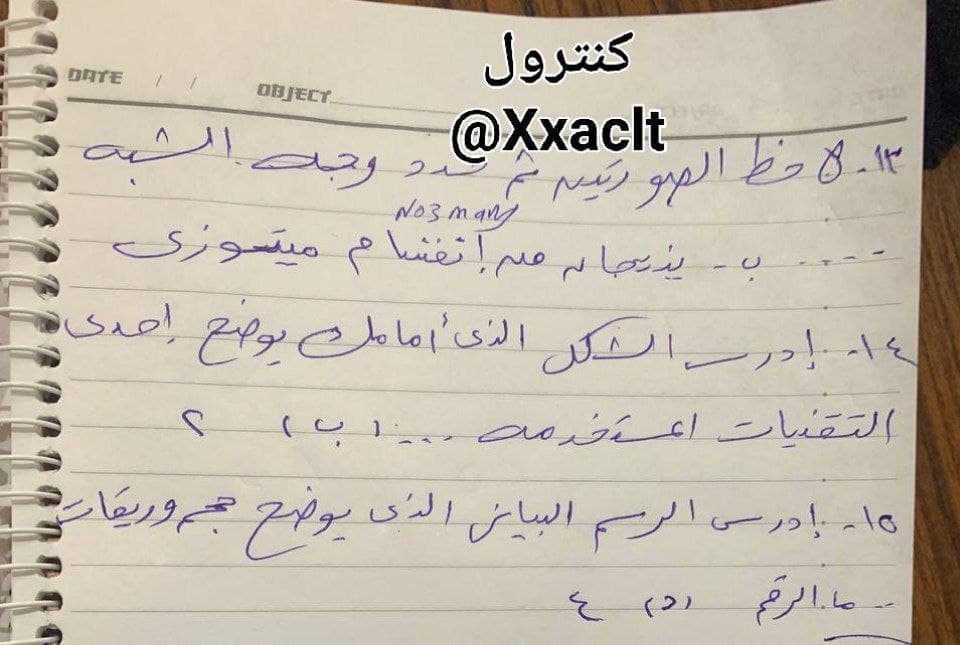 كنترول
@Xxaclt
DATE / / OBJECT
١٣- لاحظ الصورتين ثم حدد وجه الشبه
No3man
.... ب- ينتجان من إنقسام ميتوزى
١٤- إدرس الشكل الذى أمامك يوضح إحدى
التقنيات المستخدمه ... (ب) ٢
١٥- إدرس الرسم البيانى الذى يوضح حجم وريقات
-- ما الرقم (د) ٤